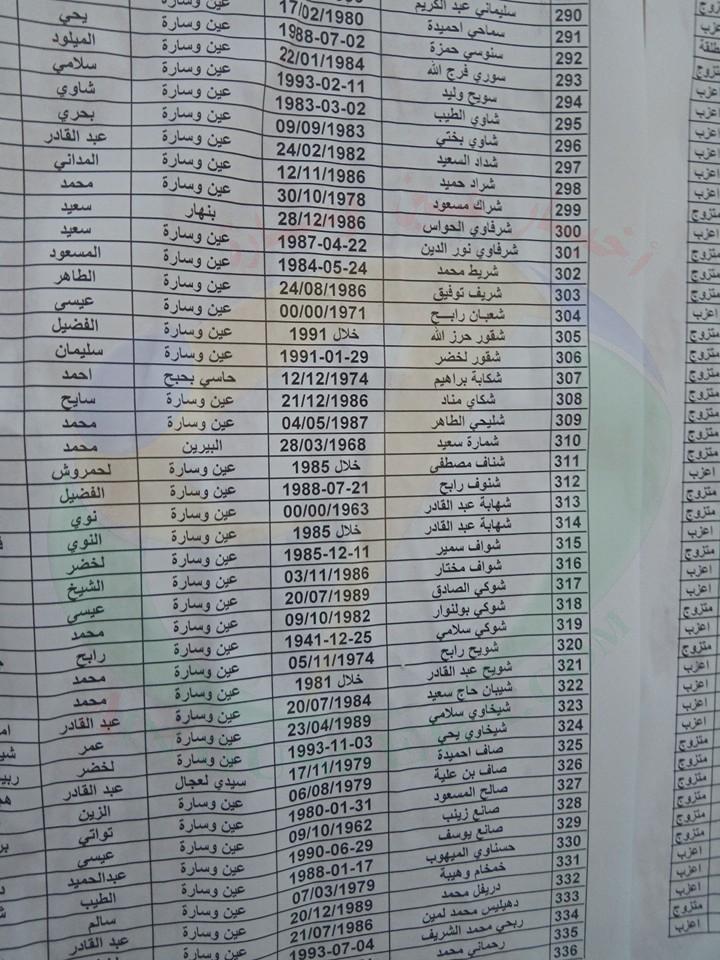 290 سليماني عبد الكريم
291 سماحي احميدة 17/02/1980 عين وسارة
292 سنوسي حمزة 1988-07-02 عين وسارة يحي
293 سوري فرج الله 22/01/1984 عين وسارة الميلود
294 سويح وليد 1993-02-11 عين وسارة سلامي
295 شاوي الطيب 1983-03-02 عين وسارة شاوي
296 شاوي بختي 09/09/1983 عين وسارة بحري
297 شداد السعيد 24/02/1982 عين وسارة عبد القادر
298 شراد حميد 12/11/1986 عين وسارة المداني
299 شراك مسعود 30/10/1978 عين وسارة محمد
300 شرفاوي الحواس 28/12/1986 بنهار سعيد
301 شرفاوي نور الدين 1987-04-22 عين وسارة سعيد
302 شريط محمد 1984-05-24 عين وسارة المسعود
303 شريف توفيق 24/08/1986 عين وسارة الطاهر
304 شعبان رابح 00/00/1971 عين وسارة عيسى
305 شقور حرز الله خلال 1991 عين وسارة الفضيل
306 شقور لخضر 1991-01-29 عين وسارة سليمان
307 شكابة براهيم 12/12/1974 حاسي بحبح احمد
308 شكاي مناد 21/12/1986 عين وسارة سايح
309 شليحي الطاهر 04/05/1987 عين وسارة محمد
310 شمارة سعيد 28/03/1968 البيرين محمد
311 شناف مصطفى خلال 1985 عين وسارة لحمروش
312 شنوف رابح 1988-07-21 عين وسارة الفضيل
313 شهابة عبد القادر 00/00/1963 عين وسارة نوي
314 شهابة عبد القادر خلال 1985 عين وسارة النوي
315 شواف سمير 1985-12-11 عين وسارة لخضر
316 شواف مختار 03/11/1986 عين وسارة الشيخ
317 شوكي الصادق 20/07/1989 عين وسارة عيسى
318 شوكي بولنوار 09/10/1982 عين وسارة محمد
319 شوكي سلامي 1941-12-25 عين وسارة رابح
320 شويح رابح 05/11/1974 عين وسارة محمد
321 شويح عبد القادر خلال 1981 عين وسارة محمد
322 شيبان حاج سعيد 20/07/1984 عين وسارة عبد القادر
323 شيخاوي سلامي 23/04/1989 عين وسارة عمر
324 شيخاوي يحي 1993-11-03 عين وسارة لخضر
325 صاف احميدة 17/11/1979 سيدي لعجال عبد القادر
326 صاف بن علية 06/08/1979 عين وسارة الزين
327 صالح المسعود 1980-01-31 عين وسارة تواتي
328 صانع زينب 09/10/1962 عين وسارة عيسى
329 صانع يوسف 1990-06-29 عين وسارة عبدالحميد
330 حسناوي الميهوب 1988-01-17 عين وسارة الطيب
331 خمخام وهيبة 07/03/1979 عين وسارة سالم
332 دريفل محمد 20/12/1989 عين وسارة عبد القادر
333 دهيليس محمد لمين 21/07/1986 عين وسارة
334 ربحي محمد الشريف 1993-07-04
335 رحماني محمد
336